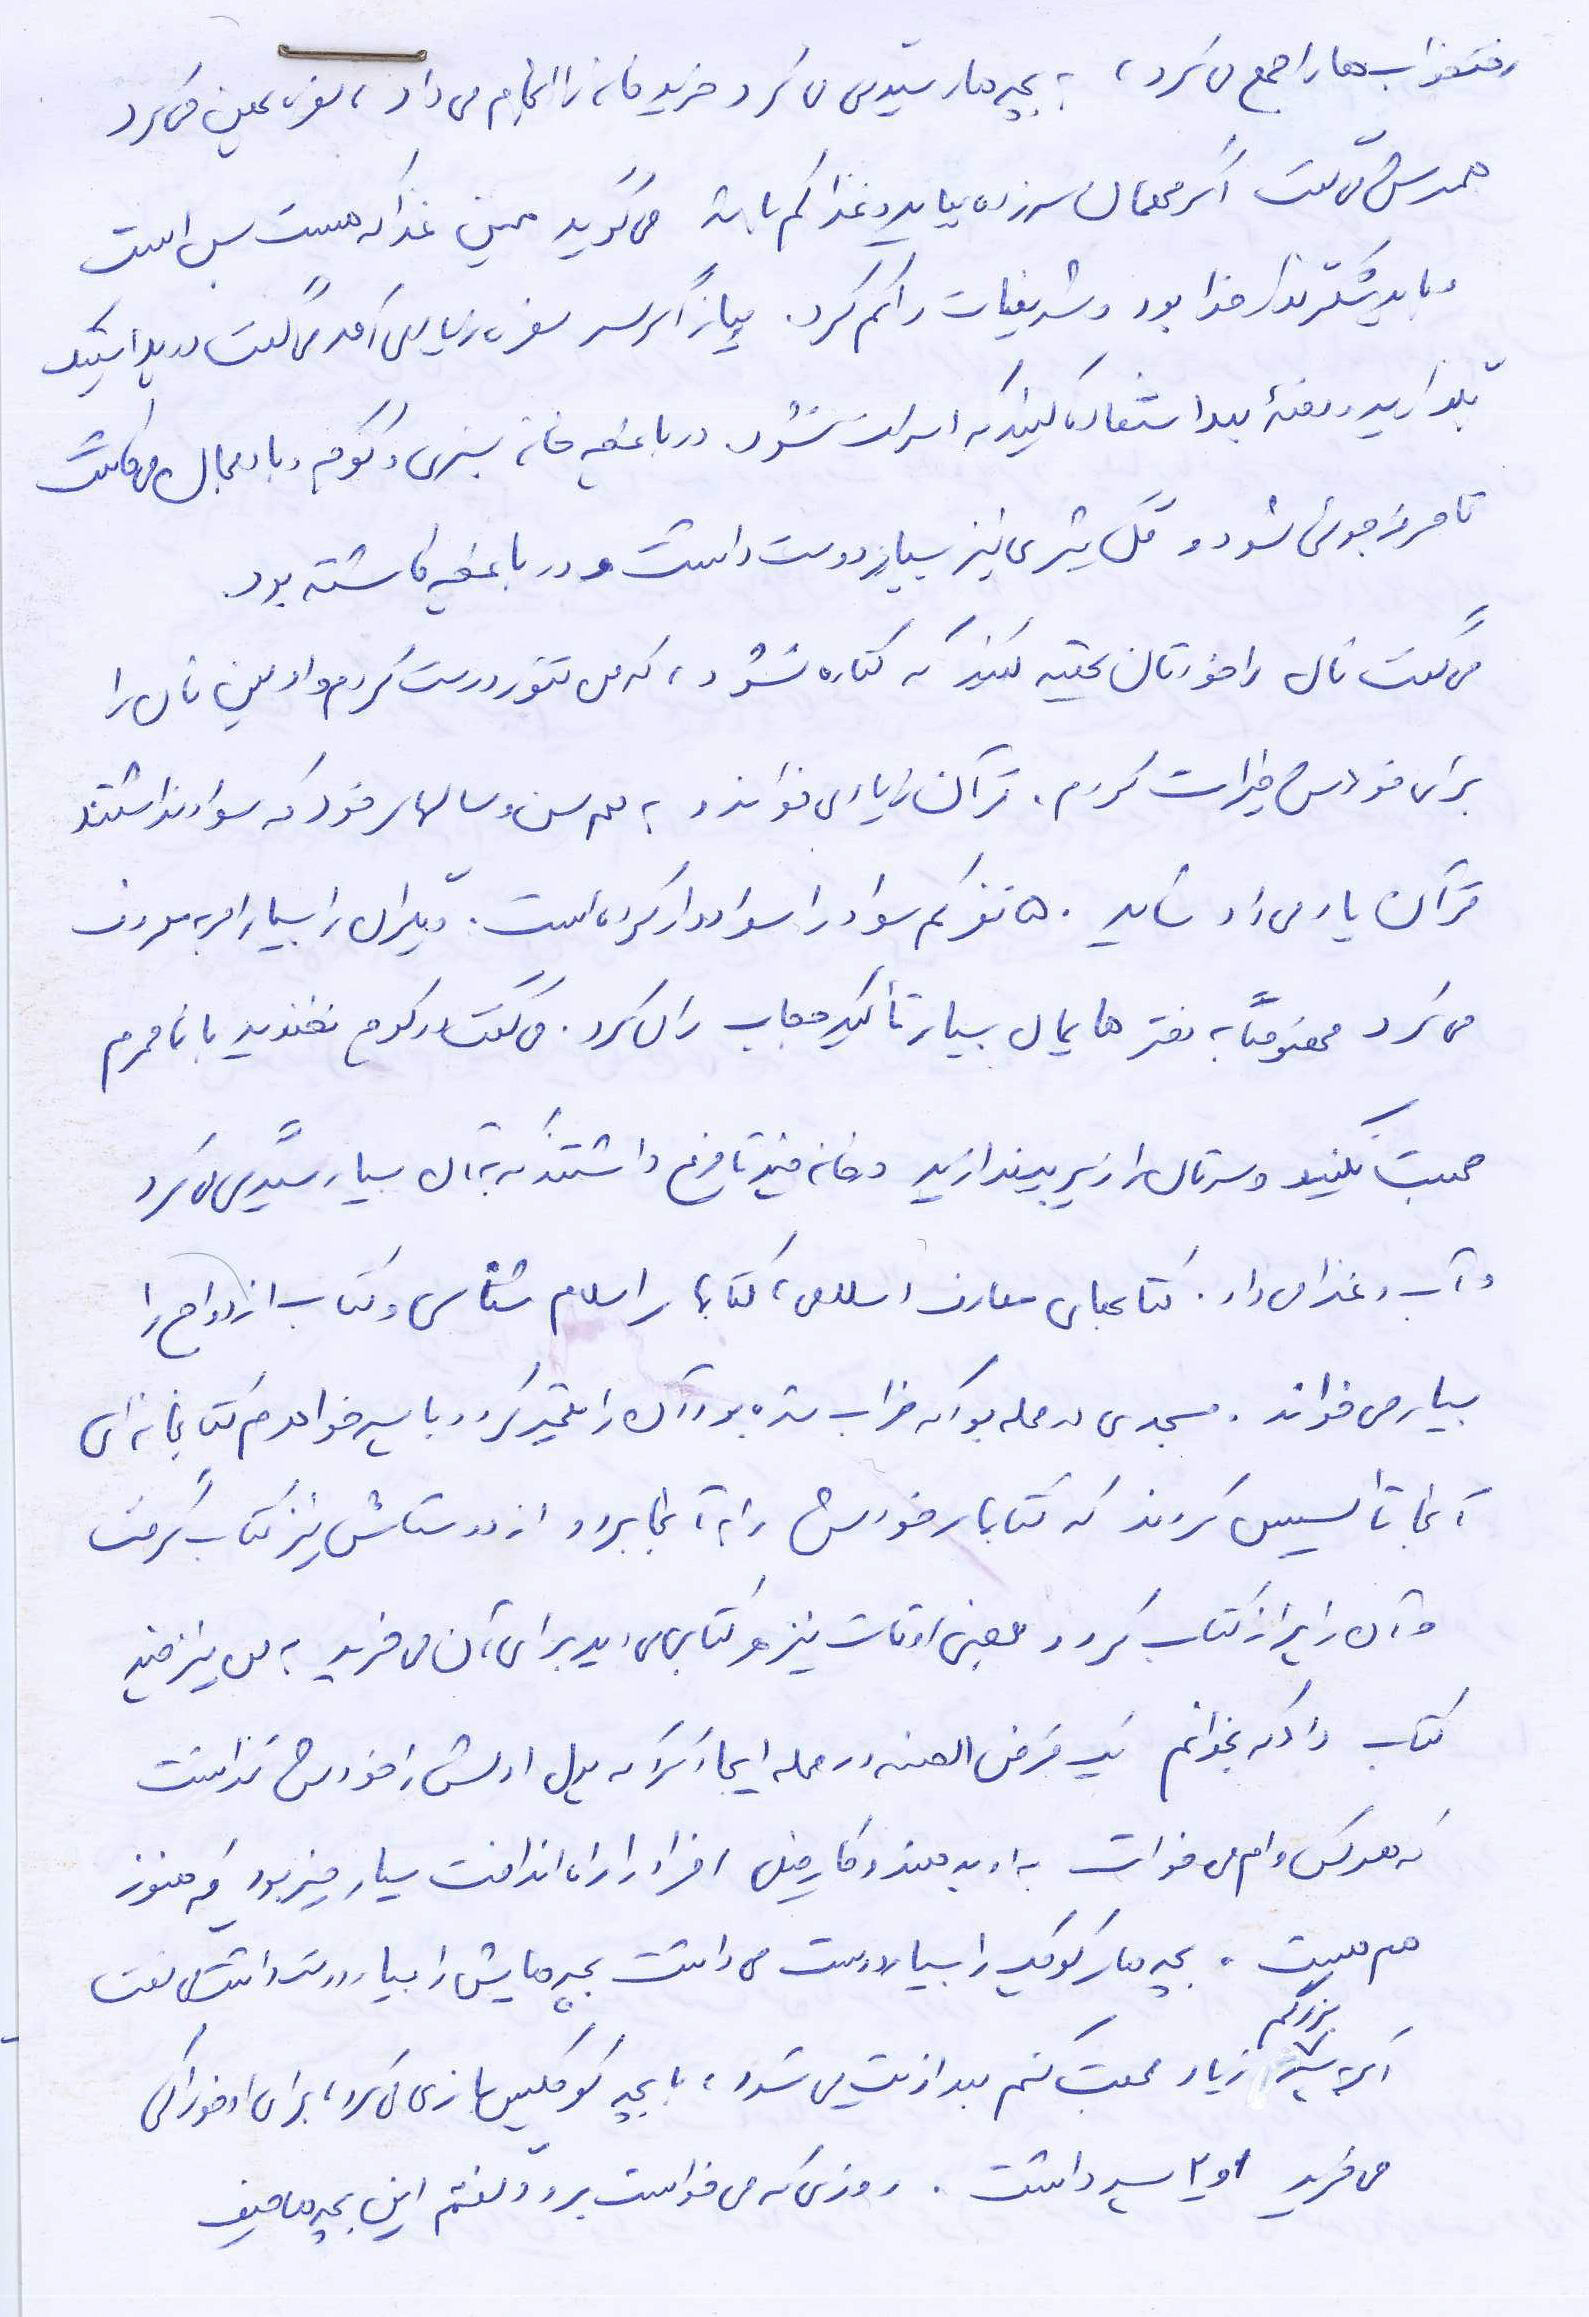 رختخواب ها را جمع می کرد، به بچه ها رسیدگی می کرد خرید خانه را انجام می داد، سفره پهن می کرد
همسرش می گفت اگر مهمان سرزده بیاید و غذا کم باشد می گوید همین غذا که هست بس است
و باید شکرگذار خدا بود و تشریفات را کم کرد. پیاز اگر سر سفره زیاد می آمد می گفت در یخدانید
بگذارید و دفعهٔ بعد استفاده کنید که اسراف نشود. در باغچه خانه سبزی و گوجه و بادمجان می کاشت
تا صرفه جویی شود و گل نیز بسیار دوست داشت و در باغچه کاشته بود.
می گفت نان را خودتان پخته کنید که کناره نشود، که من تنور درست کردم و اولین نان را
برای خودش خیرات کردم. قرآن زیاد می خواند و به هم سن و سالهای خود که سواد نداشتند
قرآن یاد می داد شاید ۵۰ نفر کم سواد را سوادار کرده است. دیگران را بسیار امر به معروف
می کرد مخصوصاً به دخترهایمان بسیار تأکید حجاب را می کرد. می گفت در کوچه نخندید با نامحرم
صحبت نکنید و سرتان را زیر بیندازید در خانه چند تا مرغ داشتند که به آن بسیار رسیدگی می کرد
و آب و غذا می داد. کتابهای معارف اسلامی، کتابهای اسلام شناسی و کتاب ازدواج را
بسیار می خواند. مسجدی در محله بود که خراب شده بود آن را تعمیر کرد و با پسر خواهرم کتابخانه ای
آنجا تأسیس کردند که کتابهای خودش را به آنجا برد و از دوستانش نیز کتاب گرفت
و آن را پر از کتاب کرد و بعضی اوقات نیز هر کتابی می دید برای آن می خرید به من نیز چند
کتاب داد که بخوانم یک قرض الحسنه در محله ایجاد کرد که پول اولش را خودش گذاشت
که هرکس وام می خواست به او بدهند و کار خیلی افراد را راه انداخت بسیار خیر بود که هنوز
هم هست. بچه های کوچک را بسیار دوست می داشت بچه هایش را بسیار دوست داشت می گفت
اگر به پسر بزرگم زیاد محبت کنم بعد اذیت می شود، با بچه کوچکش بازی می کرد، برای او خوراکی
می خرید او ۲ پسر داشت. روزی که می خواست برود گفتم این بچه ها حیف